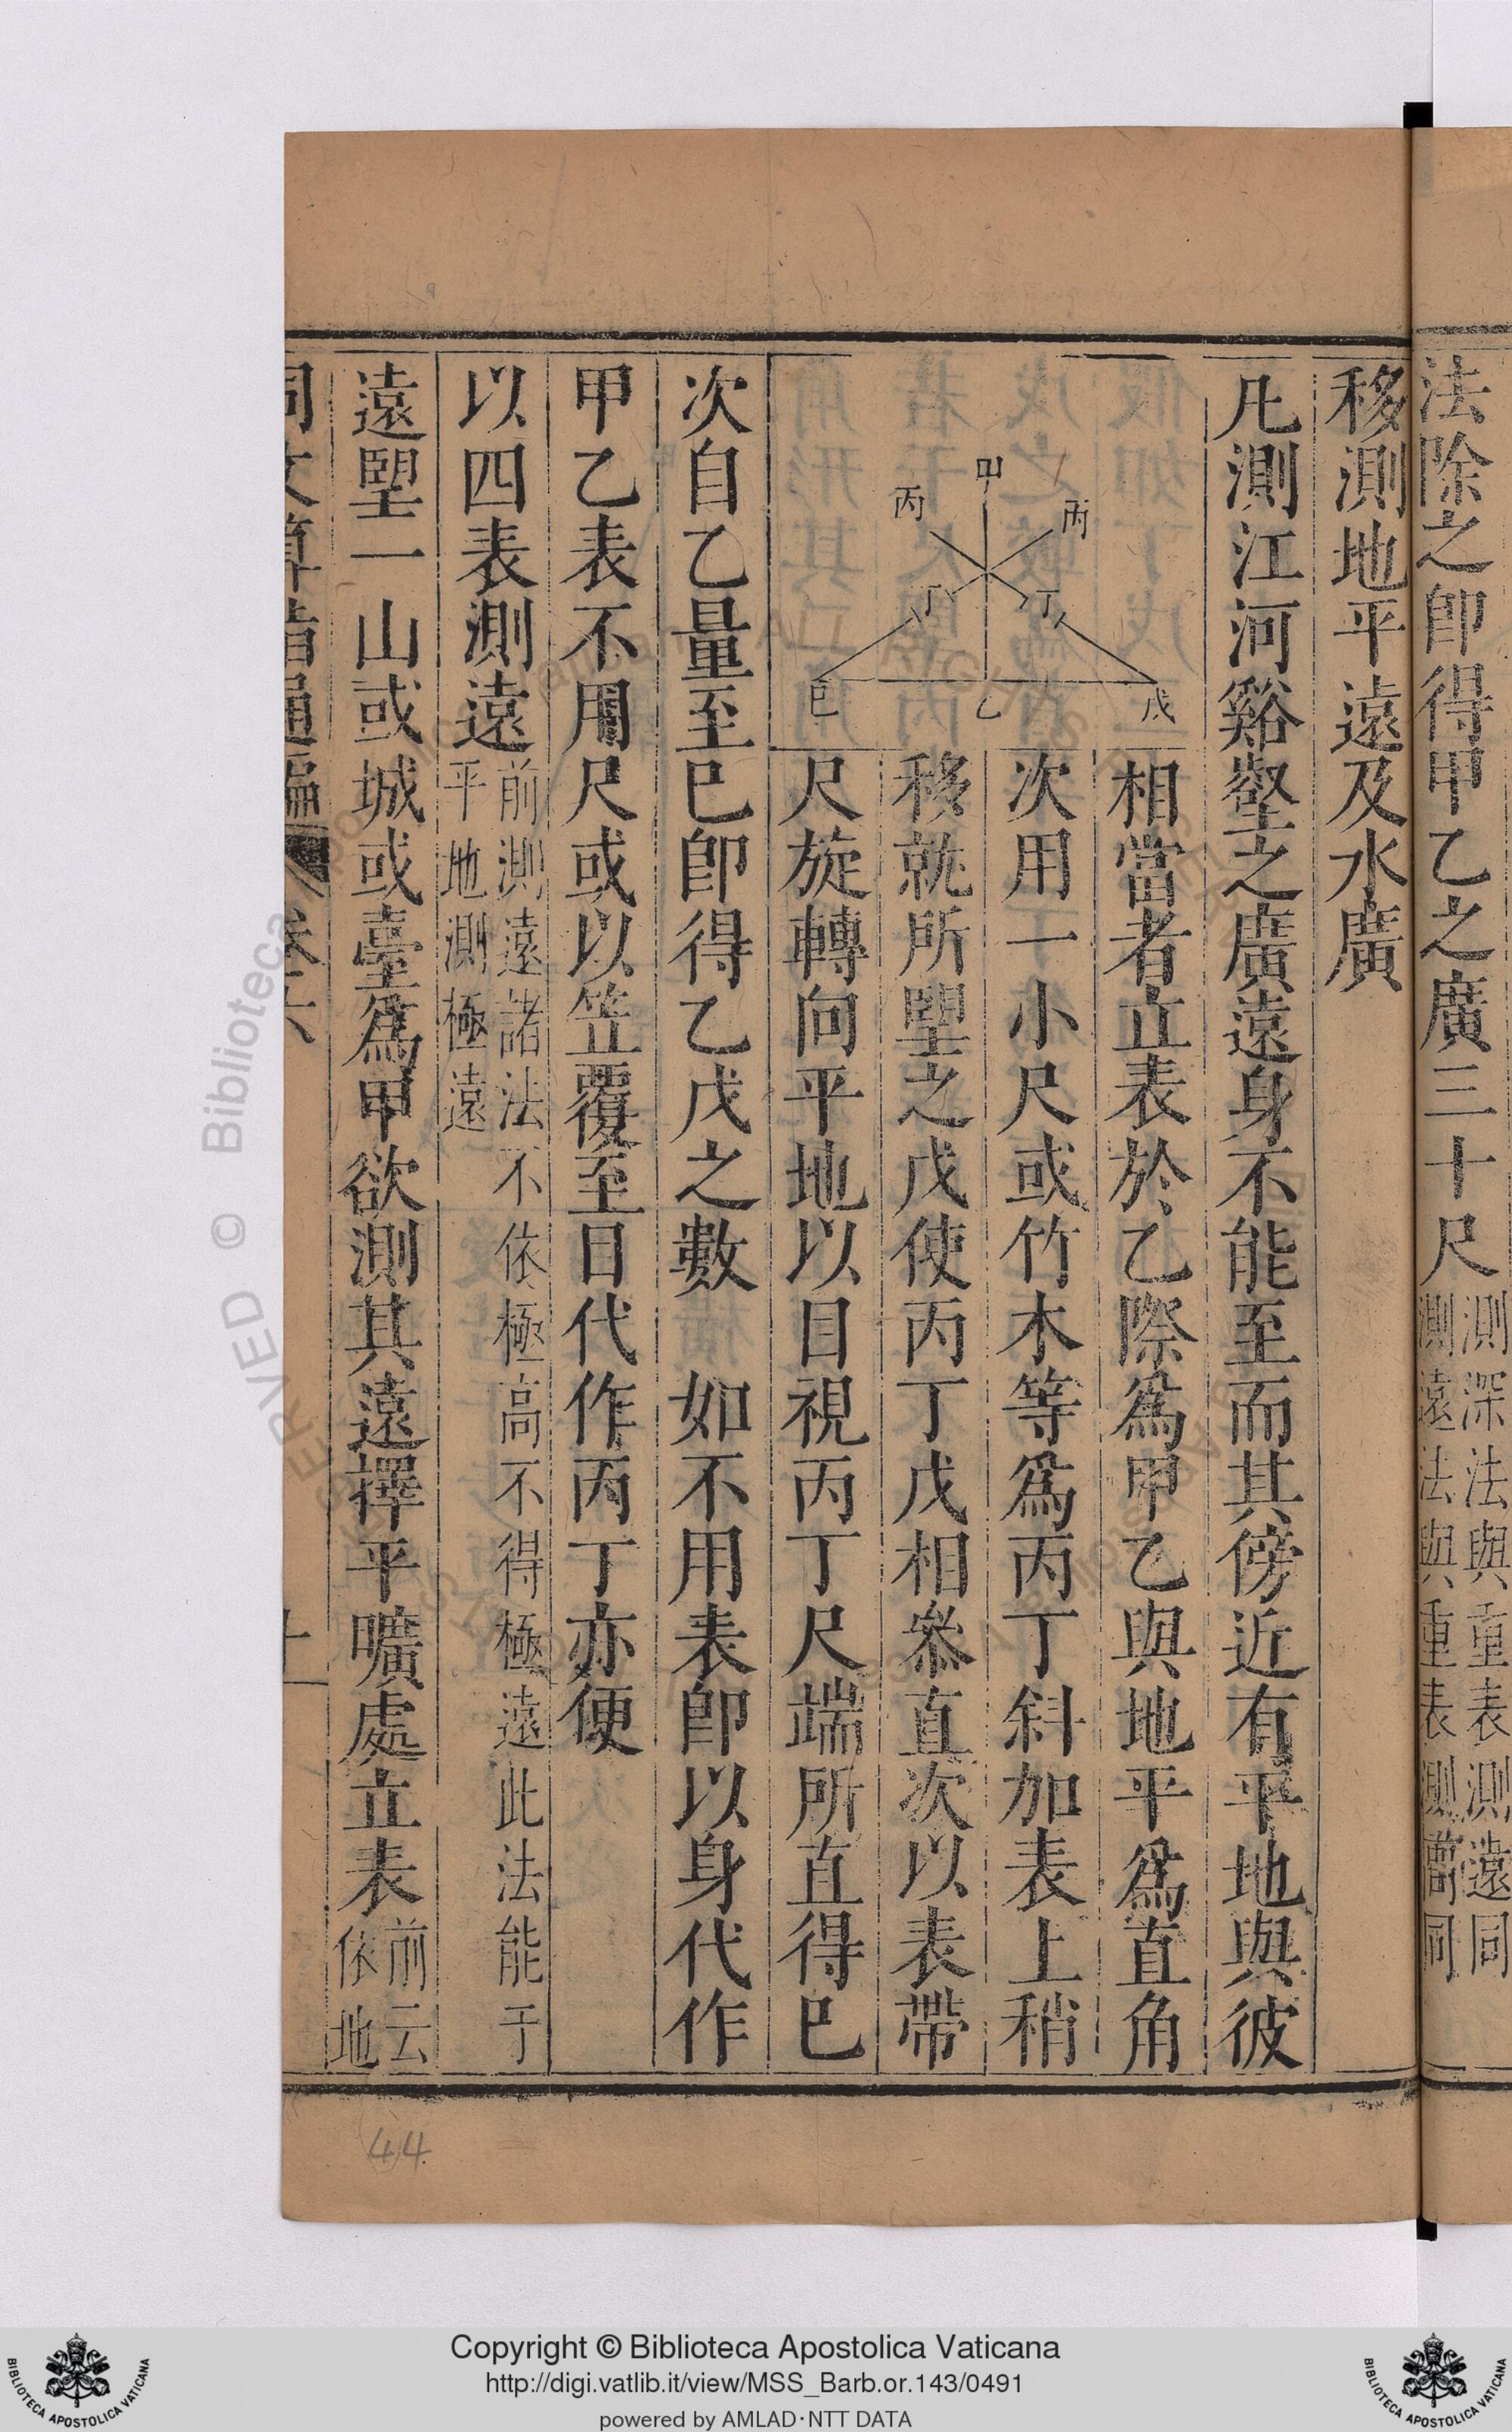 法除之卽得甲乙之廣三十尺測深法與重表測遠同測遠法與重表測同
移測地平遠及水廣
凡測江河谿壑之廣遠身不能至而其傍近有平地與彼
甲
丙
丙
丁
丁
巳
乙
戊
相當者立表於乙際爲甲乙與地平爲直角
次用一小尺或竹木等爲丙丁斜加表上稍
移就所望之戊使丙丁戊相叅直次以表帶
尺旋轉向平地以目視丙丁尺端所直得巳
次自乙量至巳卽得乙戊之數 如不用表卽以身代作
甲乙表不用尺或以笠覆至目代作丙丁亦便
以四表測遠前測遠諸法不依極高不得極遠此法能于平地測極遠
遠望一山或城或臺爲甲欲測其遠擇平曠處立表前云依地
同文算指通編 卷六
十一
44
Copyright © Biblioteca Apostolica Vaticana
http://digi.vatlib.it/view/MSS_Barb.or.143/0491
powered by AMLAD·NTT DATA